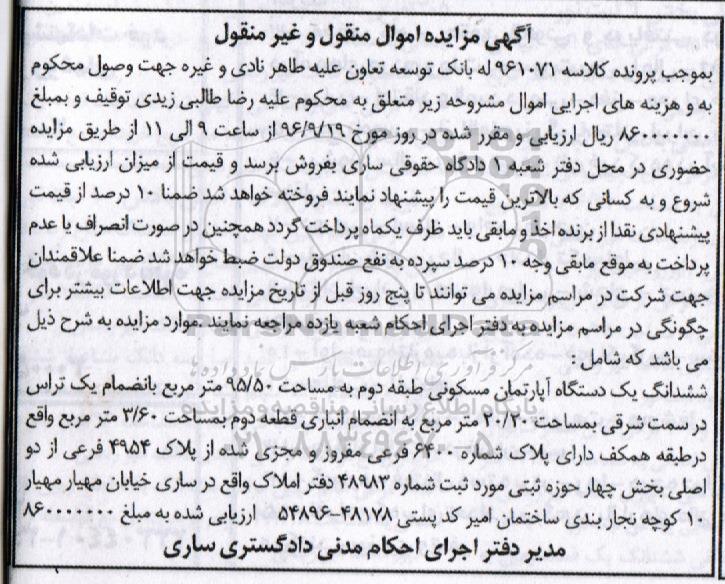 آگهی مزایده اموال منقول و غیر منقول
بموجب پرونده کلاسه ۹۶۱۰۷۱ له بانک توسعه تعاون علیه طاهر نادی و غیره جهت وصول محکوم
به و هزینه های اجرایی اموال مشروحه زیر متعلق به محکوم علیه رضا طالبی زیدی توقیف و بمبلغ
۸۶۰۰۰۰۰۰۰ ریال ارزیابی و مقرر شده در روز مورخ ۹۶/۹/۱۹ از ساعت ۹ الی ۱۱ از طریق مزایده
حضوری در محل دفتر شعبه ۱ دادگاه حقوقی ساری بفروش برسد و قیمت از میزان ارزیابی شده
شروع و به کسانی که بالاترین قیمت را پیشنهاد نمایند فروخته خواهد شد ضمنا ۱۰ درصد از قیمت
پیشنهادی نقدا از برنده اخذ و مابقی باید ظرف یکماه پرداخت گردد همچنین در صورت انصراف یا عدم
پرداخت به موقع مابقی وجه ۱۰ درصد سپرده به نفع صندوق دولت ضبط خواهد شد ضمنا علاقمندان
جهت شرکت در مراسم مزایده می توانند تا پنج روز قبل از تاریخ مزایده جهت اطلاعات بیشتر برای
چگونگی در مراسم مزایده به دفتر اجرای احکام شعبه یازده مراجعه نمایند .موارد مزایده به شرح ذیل
می باشد که شامل :
ششدانگ یک دستگاه آپارتمان مسکونی طبقه دوم به مساحت ۹۵/۵۰ متر مربع بانضمام یک تراس
در سمت شرقی بمساحت ۲۰/۲۰ متر مربع به انضمام انباری قطعه دوم بمساحت ۳/۶۰ متر مربع واقع
درطبقه همکف دارای پلاک شماره ۶۴۰۰ فرعی مفروز و مجزی شده از پلاک ۴۹۵۴ فرعی از دو
اصلی بخش چهار حوزه ثبتی مورد ثبت شماره ۴۸۹۸۳ دفتر املاک واقع در ساری خیابان مهیار مهیار
۱۰ کوچه بجار بندی ساختمان امیر کد پستی ۴۸۱۷۸-۵۴۸۹۶ ارزیابی شده به مبلغ ۸۶۰۰۰۰۰۰۰
مدیر دفتر اجرای احکام مدنی دادگستری ساری
ParsNamadData
مرکز فرآوری اطلاعات پارس نماد داده ها
پایگاه اطلاع رسانی مناقصه و مزایده
۰۲۱-۸۸۳۴۹۶۷۰-۵